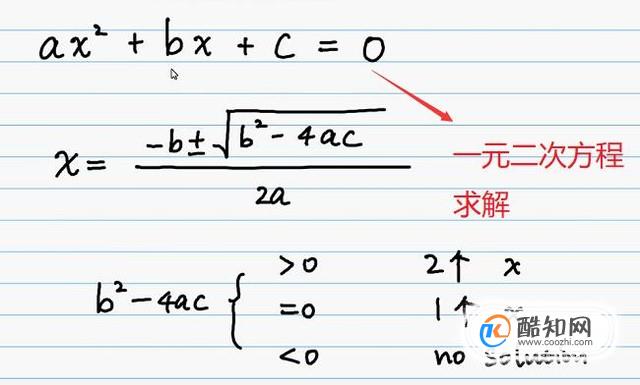 ax² + bx + c = 0
x = \frac{-b ± \sqrt{b² - 4ac}}{2a}
一元二次方程
求解
>0 2个 x
b² - 4ac { =0 1个
<0 no solution
酷知网
www.coozhi.com